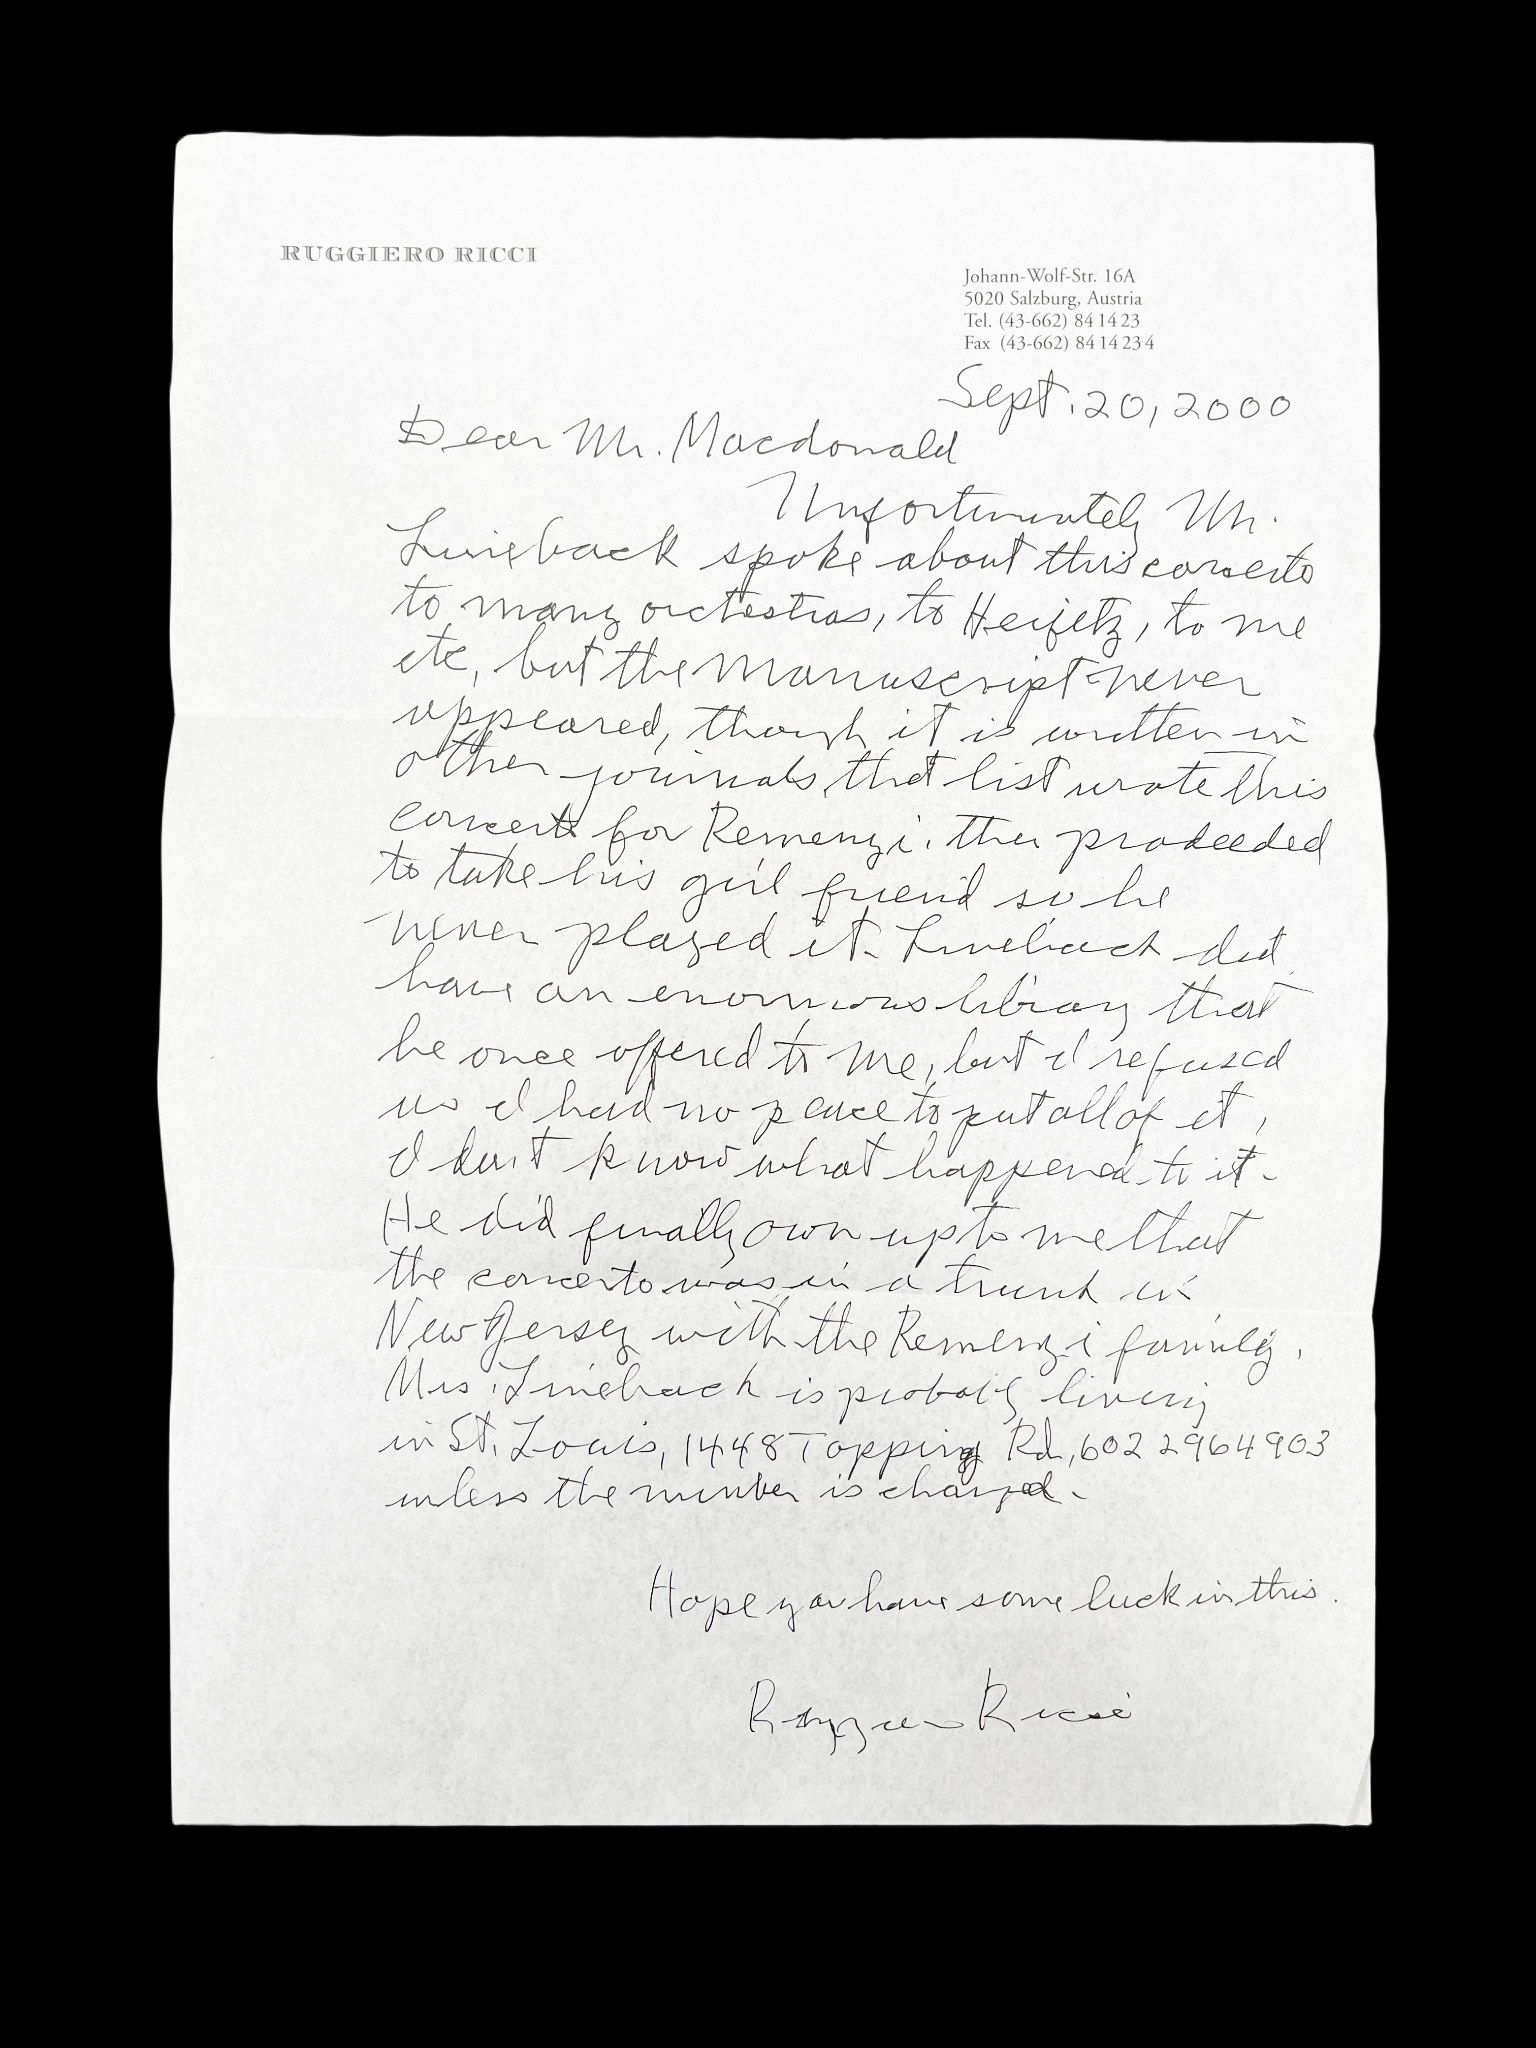 RUGGIERO RICCI
Johann-Wolf-Str. 16A
5020 Salzburg, Austria
Tel. (43-662) 84 14 23
Fax (43-662) 84 14 23 4
Sept. 20, 2000
Dear Mr. Macdonald
Unfortunately Mr.
Lineback spoke about this concerto
to many orchestras, to Heifetz, to me
etc, but the manuscript never
appeared, though it is written in
other journals that list wrote this
concerto for Remenyi. then prodeeded
to take his girl friend so he
never played it. Lineback did
have an enormous library that
he once offered to me, but I refused
as I had no place to put all of it,
I don't know what happened to it.
He did finally own up to me that
the concerto was in a trunk in
New Jersey with the Remenyi family.
Mrs. Lineback is probably living
in St. Louis, 1448 Topping Rd, 602 2964903
unless the number is changed.
Hope you have some luck in this.
Ruggiero Ricci